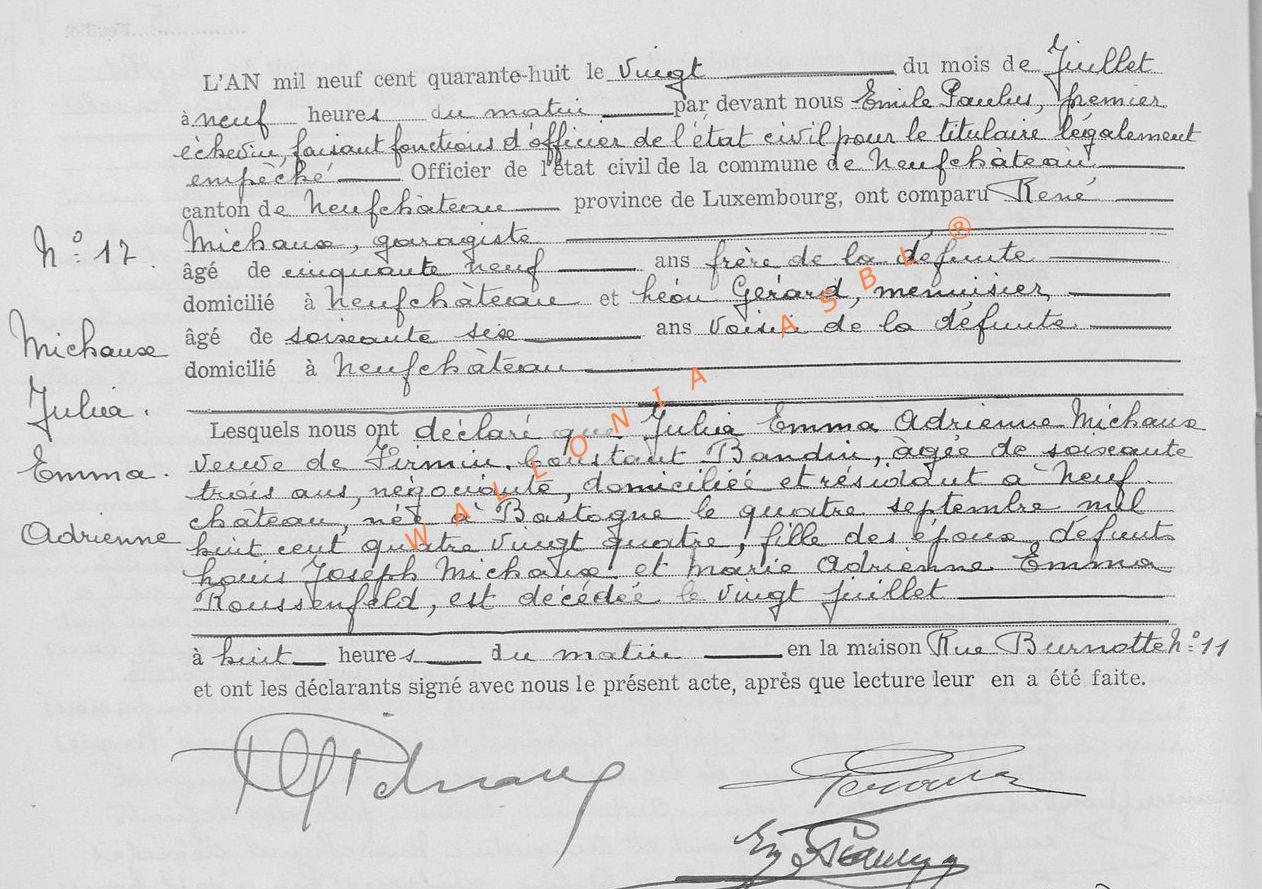 L'AN mil neuf cent quarante-huit le vingt du mois de Juillet
à neuf heures du matin par devant nous Emile Paulus, premier
échevin, faisant fonctions d'officier de l'état civil pour le titulaire légalement
empêché Officier de l'état civil de la commune de Neufchâteau
canton de Neufchâteau province de Luxembourg, ont comparu René
N° 17. Michaux, garagiste
âgé de cinquante neuf ans frère de la défunte
domicilié à Neufchâteau et Léon Gérard, menuisier,
Michaux âgé de soixante six ans voisin de la défunte
domicilié à Neufchâteau
Julia.
Lesquels nous ont déclaré que Julia Emma Adrienne Michaux
Emma. veuve de Firmin, Constant Baudin, âgée de soixante
trois ans, négociante, domiciliée et résidant à Neuf
château, née à Bastogne le quatre septembre mil
Adrienne huit cent quatre vingt quatre, fille des époux défunts
Louis Joseph Michaux et Marie Adrienne Emma
Roussenfeld, est décédée le vingt juillet
à huit heures du matin en la maison Rue Burnotte N° 11
et ont les déclarants signé avec nous le présent acte, après que lecture leur en a été faite.
WALLONIA ASBL ®